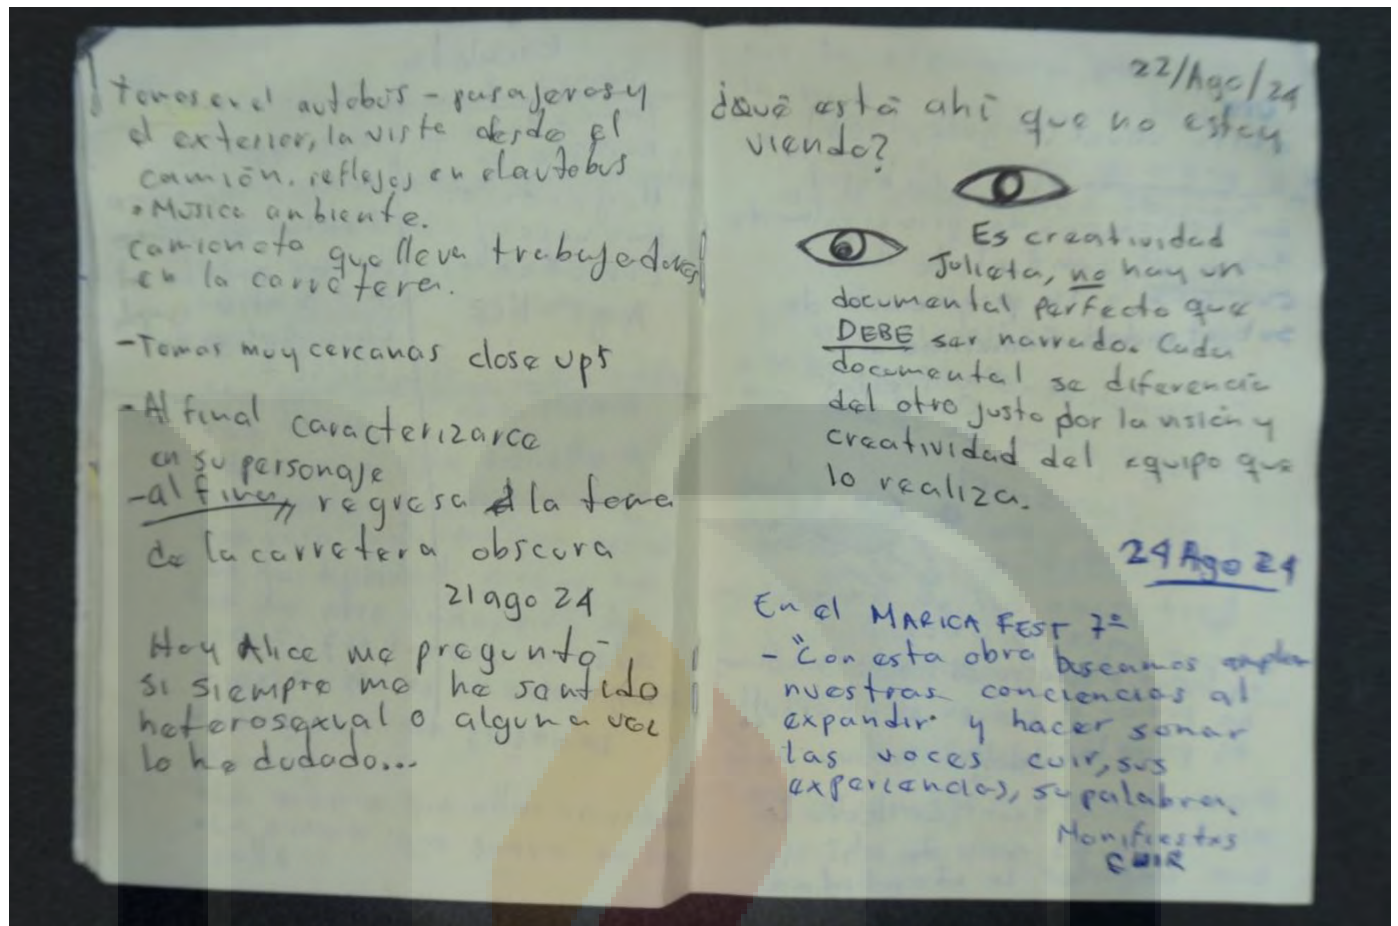 Tomas en el autobús - pasajeros y
el exterior, la vista desde el
camión. reflejos en el autobus
• Musica ambiente.
camioneta que lleva trabajadores
en la carretera.
- Tomas muy cercanas close ups
- Al final caracterizarce
en su personaje
- al final, regresa a la toma
de la carretera obscura
21 ago 24
Hoy Alice me preguntó
si siempre me he sentido
heterosexual o alguna vez
lo he dudado...
22/Ago/24
¿Qué está ahí que no estoy
viendo?
Es creatividad
Julieta, no hay un
documental perfecto que
DEBE ser narrado. Cada
documental se diferencia
del otro justo por la visión y
creatividad del equipo que
lo realiza.
24 Ago 24
En el MARICA FEST 7º
- "Con esta obra buscamos
nuestras conciencias al
expandir y hacer sonar
las voces cuir, sus
experiencias, su palabra.
Manifiestxs
CUIR